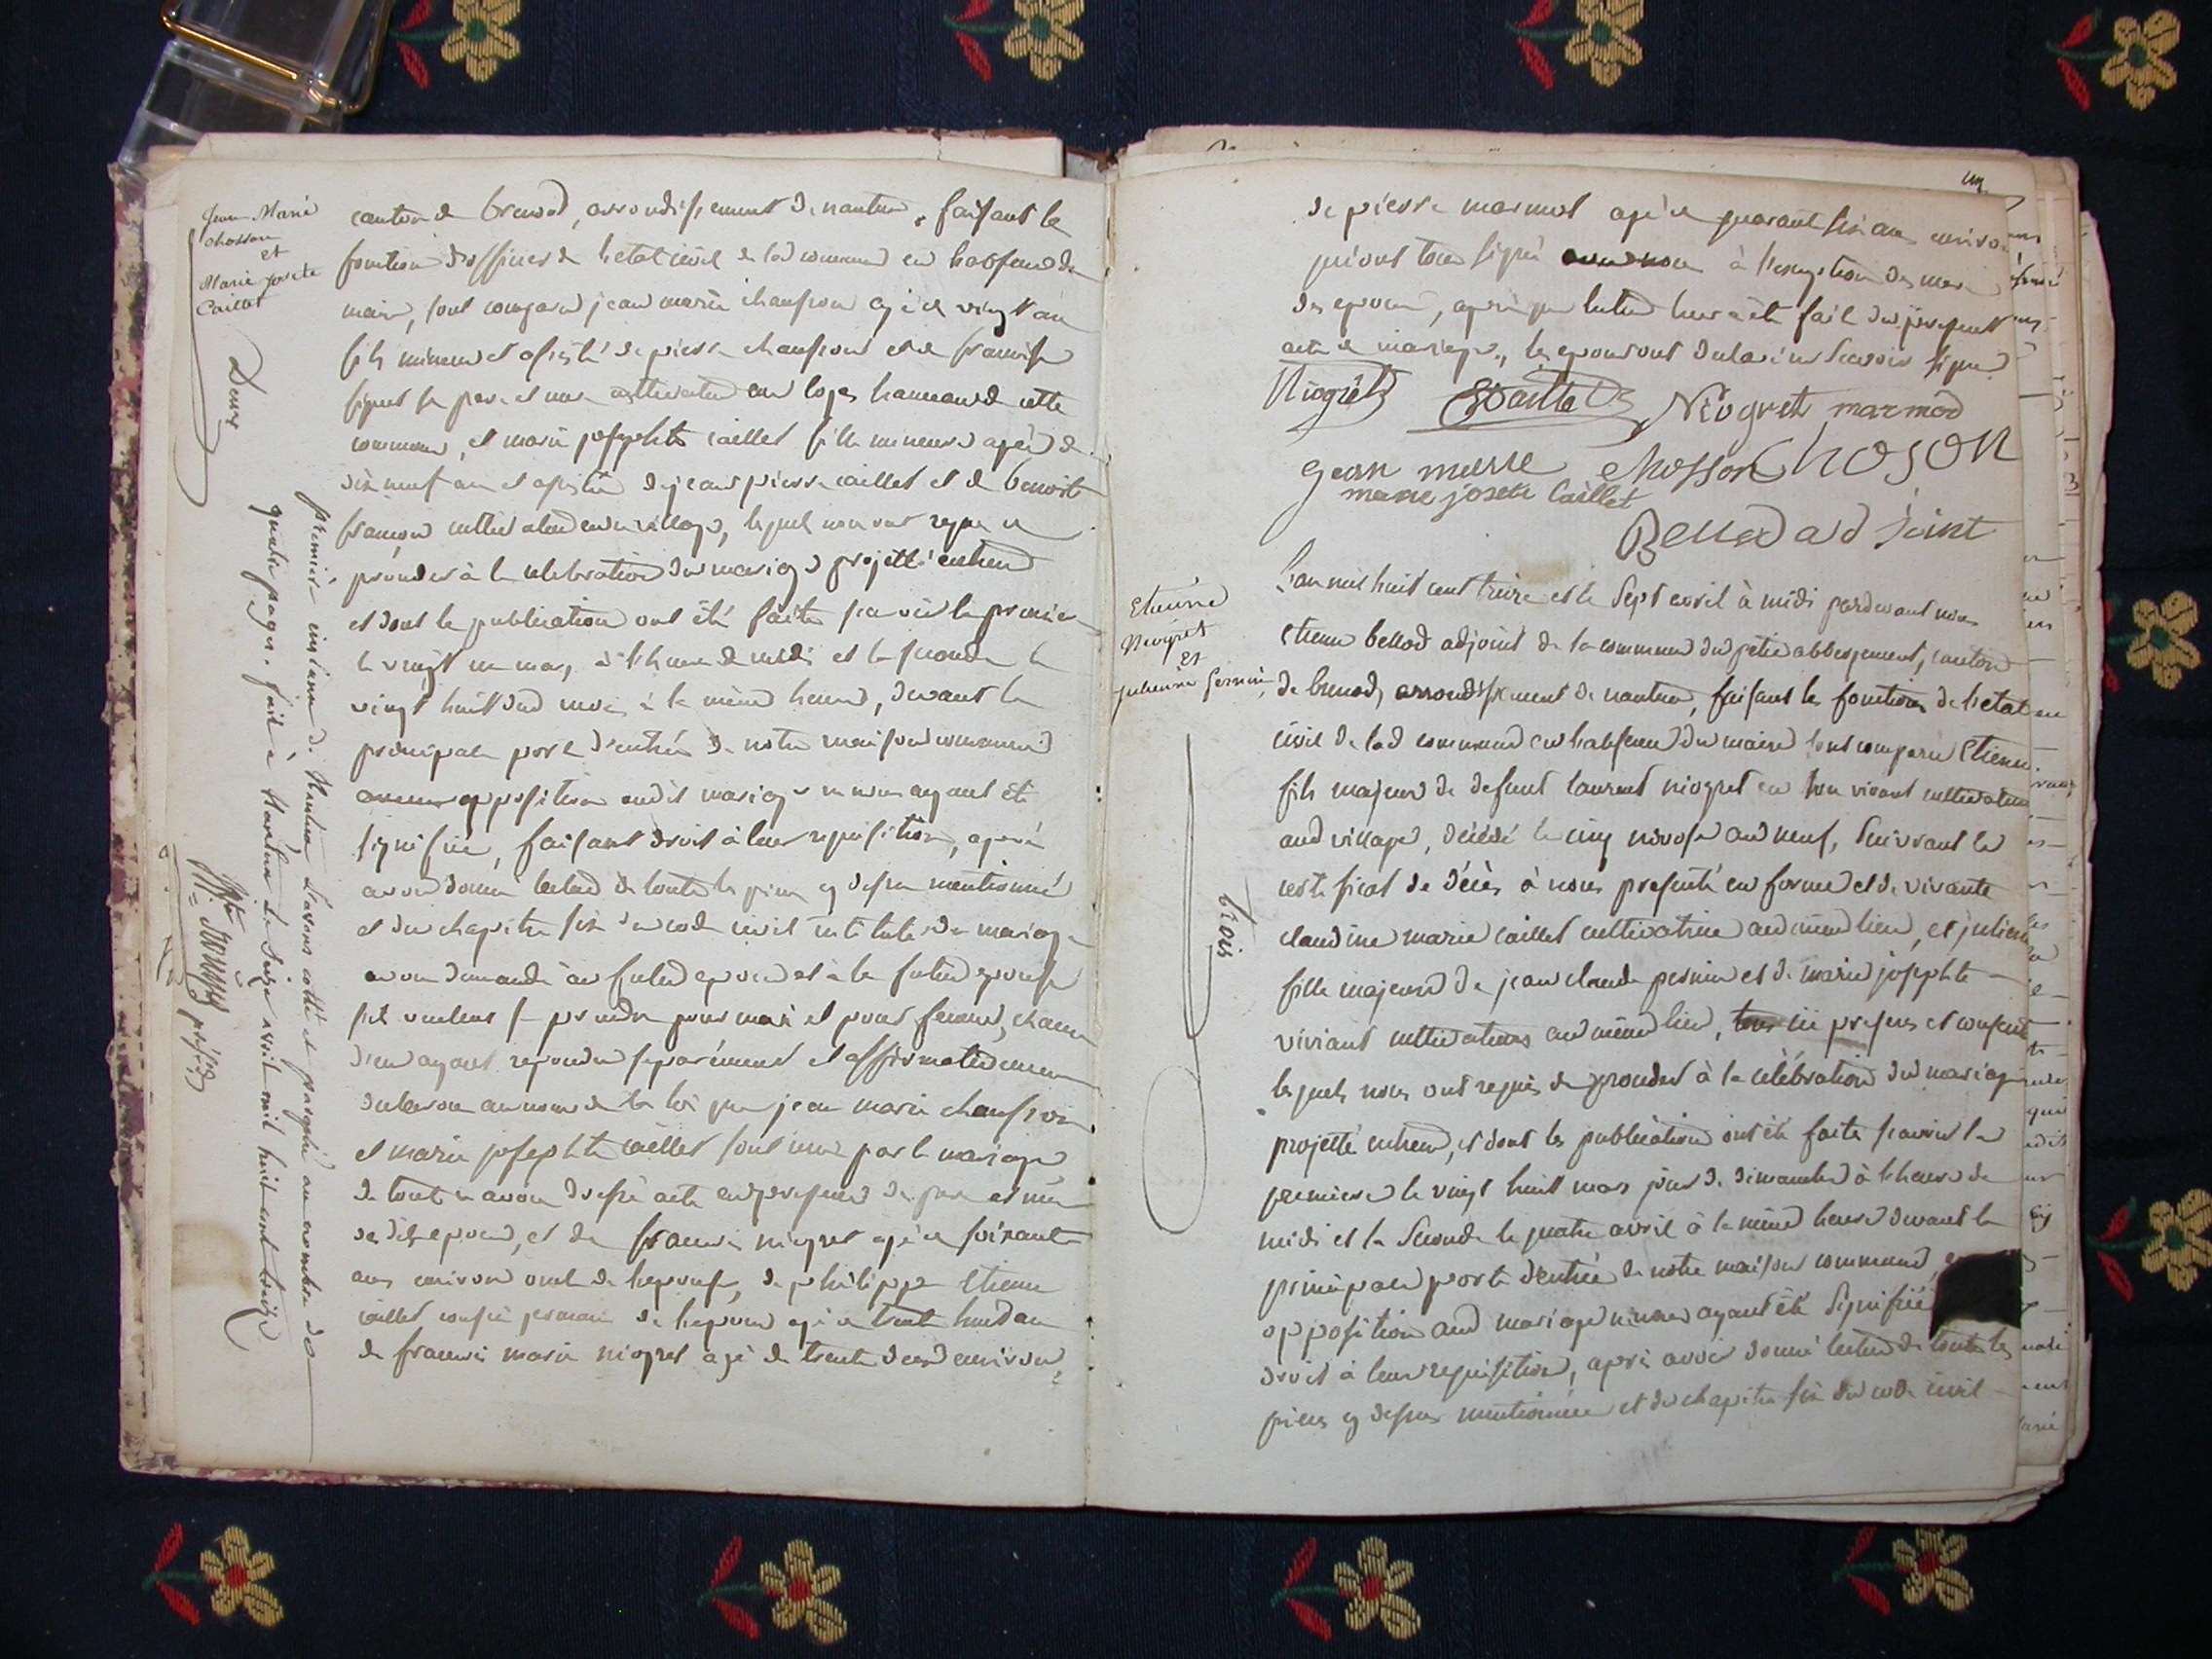 Jean Marie
chosson
et
Marie Josete
Caillat
Deux
canton de brenod, arrondissement de nantua, faisant les
fonction d'officier de l'etat civil de lad commune en l'absence du
maire, sont comparu jean marie chausson agé de vingt an
fils mineur et assisté de pierre chausson et de francoise
ses pere et mere cultivateur au loges hameau de cette
commune, et marie josephte caillet fille mineure agée de
dix neuf an et assistée de jean pierre caillet et de benoite
françon cultivateur en ce village, lequel nous ont requis de
proceder à la celebration du mariage projetté entreux
et dont les publication ont été faite savoir la premiere
le vingt un mars à l'heure de midi et la seconde le
vingt huit dud mois à la même heure, devant la
principale porte d'entrée de notre maison commune
aucune opposition audit mariage ne nous ayant été
signifiée, faisant droit à leur requisition, après
avoir donné lecture de toute les pieces cy dessus mentionné
et du chapitre six du code civil intitulé du mariage
avon demandé au futur epoux et à la future epouse
s'il veulent se prendre pour mari et pour femme, chacun
d'eux ayant repondu separément et affirmativement
declaron au nom de la loi que jean marie chausson
et marie josephte caillet sont uni par le mariage
de tout ce avon dressé acte en presence des pere et mere
desdits epoux, et de francois niogret agé de soixante
ans environ oncle de l'epouse, de philippe etienne
caillet cousin germain de l'epoux agé de trent huit an
de francois marie niogret agé de trente deux environ,
premiere instance de Nantua Lavons cotté et paraphé au nombre de
quatre pages. fait à Nantua Le seize avril mil huit cent treize
de pierre marmet agé de quarant six ans environ
qui ont tous signé avec nous à l'exception des mere
des epoux, après que lecture leur a été fait du present
acte de mariage, les epoux ont declaré savoir signer
Niogret Caillet Niogret marmod
jean marie chosson Choson
marie josete Caillet
Bellod adjoint
Etienne
Niogret
et
julienne pernin
trois
L'an mil huit cent treize et le sept avril à midi pardevant nous
etienne bellod adjoint de la commune du petit abbergement, canton
de brenod, arrondissement de nantua, faisant les fonctions de l'etat
civil de lad commune en l'absence du maire sont comparu Etienne
fils majeur de defunt laurent niogret en son vivant cultivateur
aud village, décédé le cinq nivose an neuf, suivant le
certificat de décès à nous presenté en forme et de vivante
claudine marie caillet cultivatrice aud même lieu, et julienne
fille majeure de jean claude pernin et de marie josephte
viviant cultivateurs aud même lieu, ici presens et consent
lesquels nous ont requis de proceder à la célébration du mariage
projetté entreux, et dont les publication ont été faite savoir la
premiere le vingt huit mars jour de dimanche à l'heure de
midi et la seconde le quatre avril à la même heure devant la
principale porte d'entrée de notre maison commune,
opposition aud mariage ne nous ayant été signifiée
droit à leur requisition, après avoir donné lecture de toute les
pieces cy dessus mentionnée et du chapitre six du code civil